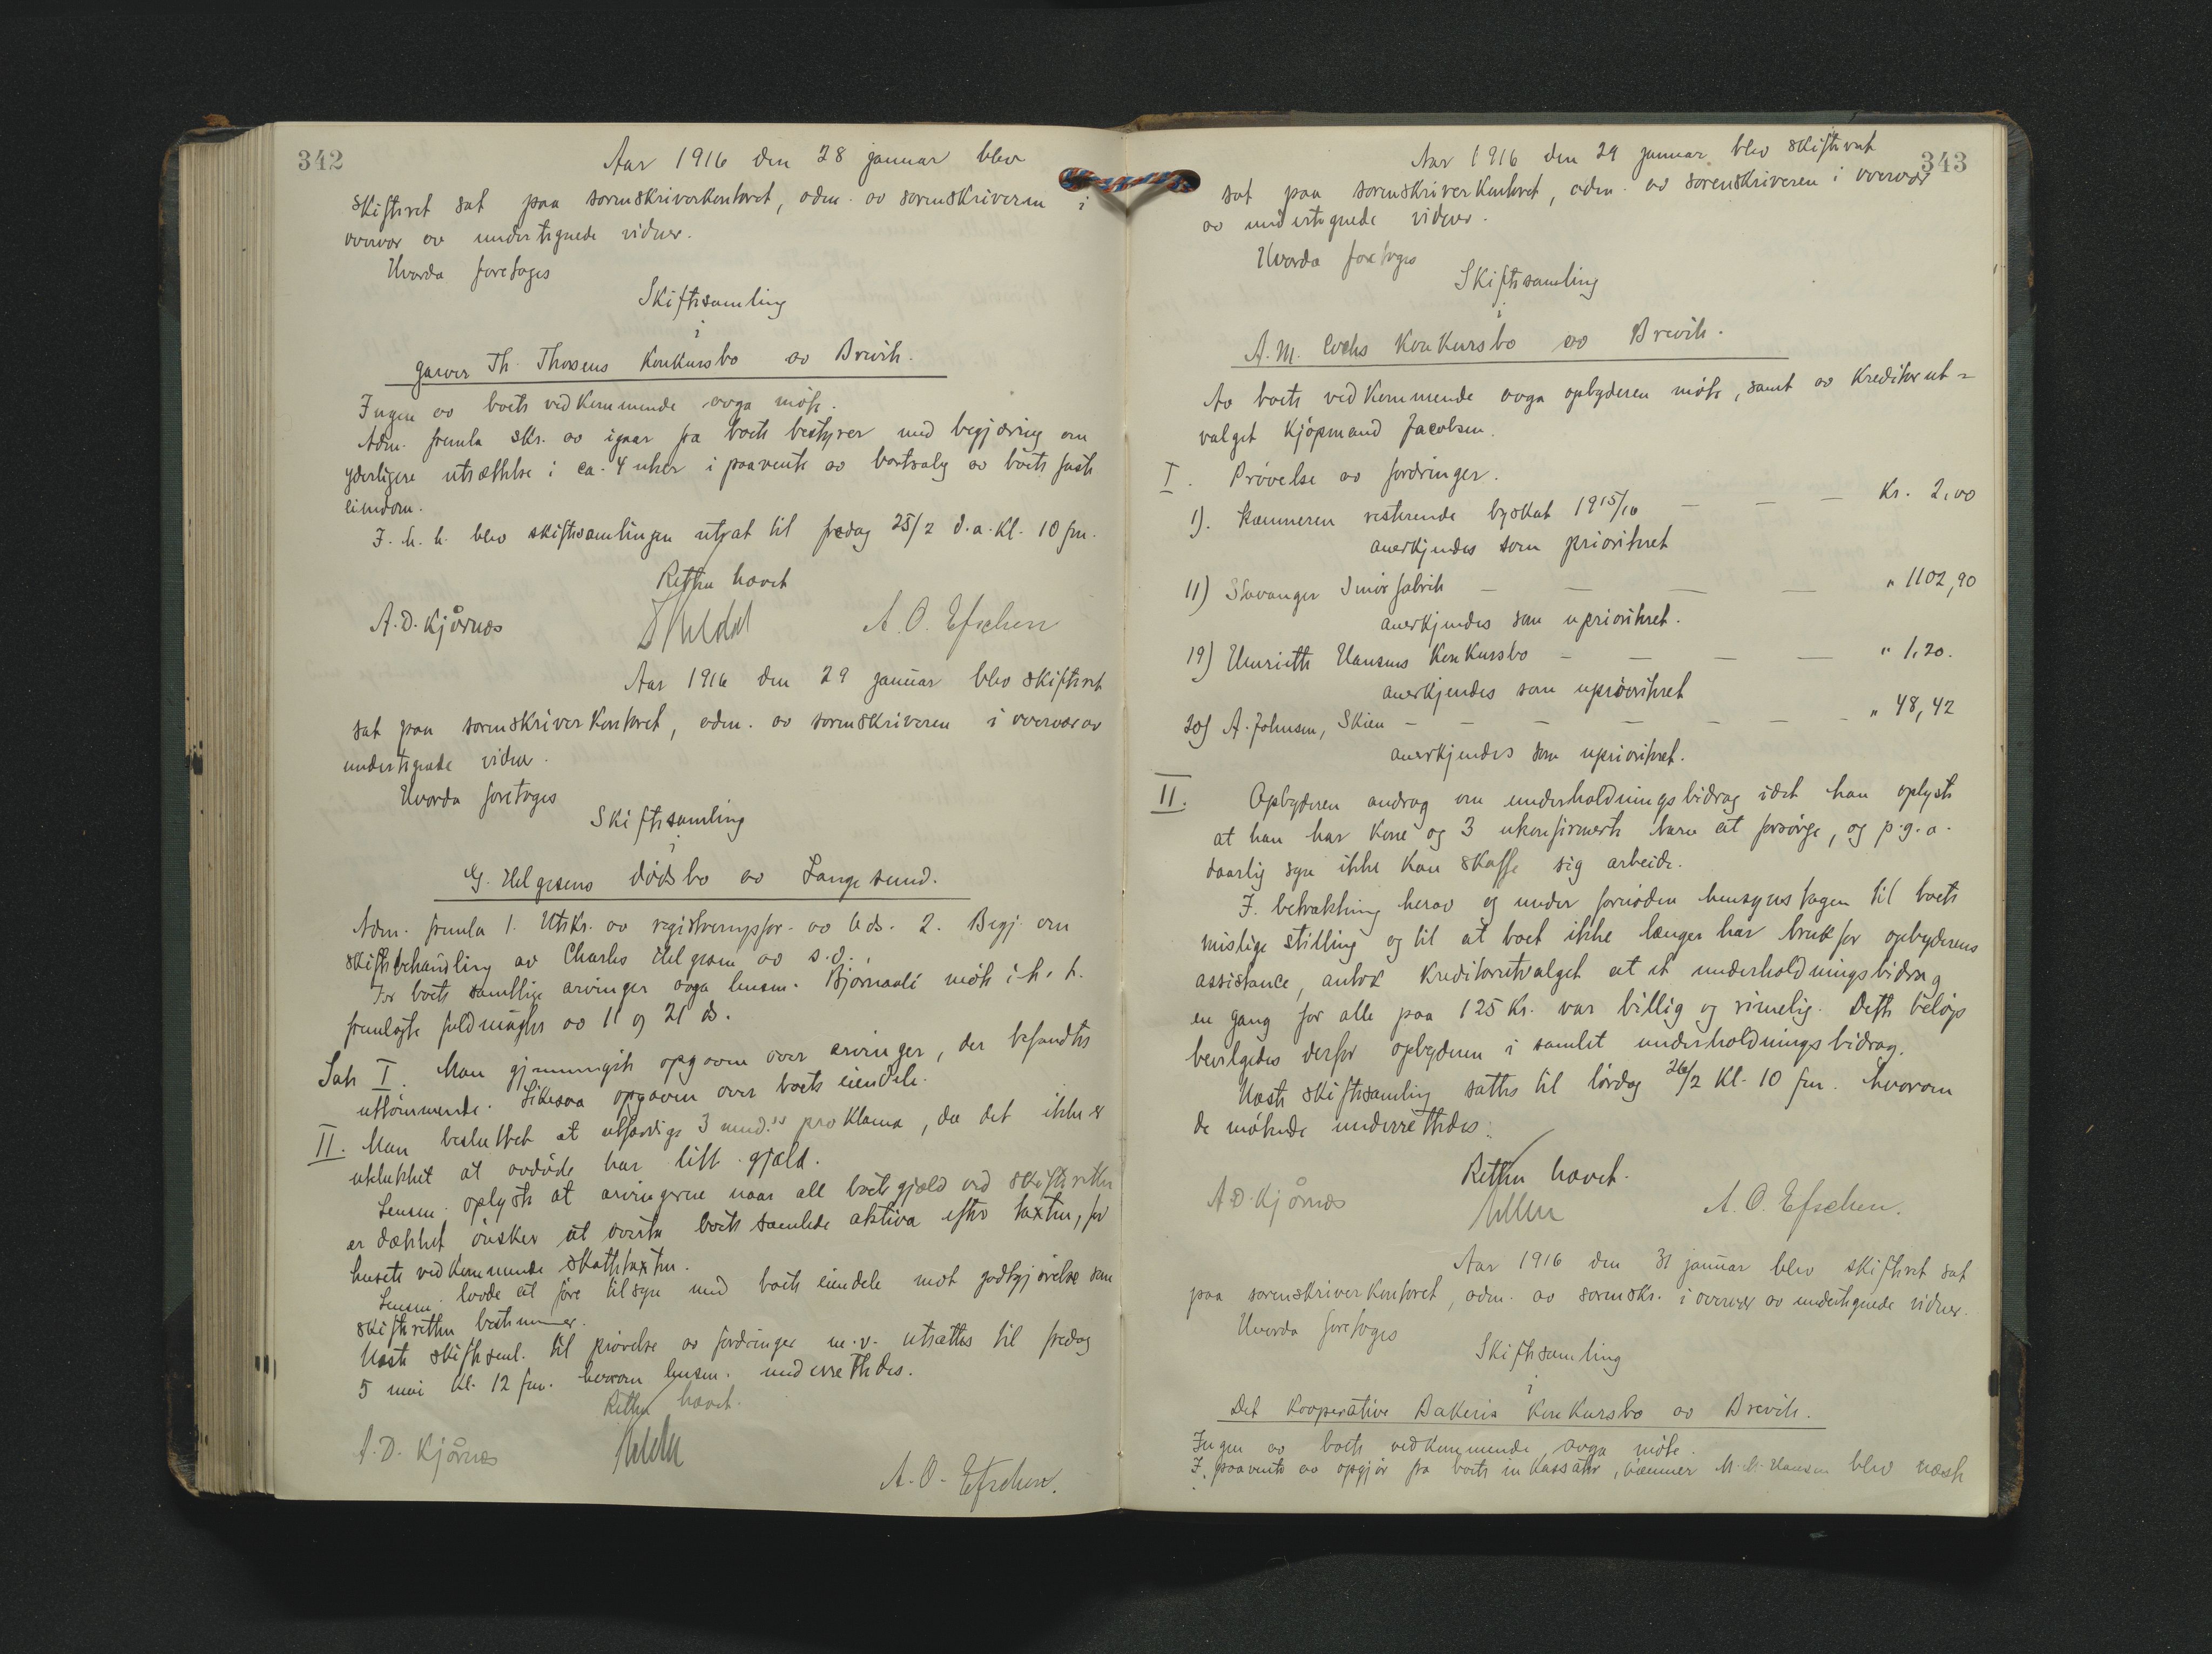 342
Aar 1916 den 28 januar blev
skifteret sat paa sorenskriverkontoret, adm. av sorenskriveren i
overvær av undertegnede vidner.
Hvorda foretoges
Skiftesamling
i
garver Th. Thorsens konkursbo av Brevik.
Ingen av boets vedkommende avga möte.
Adm. fremla skr. av igaar fra boets bestyrer med begjæring om
yderligere utsættelse i ca. 4 uker i paavente av bortsalg av boets faste
eiendom.
I. h. t. blev skiftesamlingen utsat til fredag 25/2 d.a. kl. 10 fm.
Retten hævet
A. D. Kjörnæs A. O. Efschen
Aar 1916 den 29 januar blev skifteret
sat paa sorenskriverkontoret, adm. av sorenskriveren i overvær av
undertegnede vidner.
Hvorda foretoges
Skiftesamling
i
G. Helgesens dödsbo av Langesund.
Adm. fremla 1. Utskr. av registreringsfor. av 6 ds. 2. Begj. om
skiftebehandling av Charles Helgesen av s.d.
For boets samtlige arvinger avga lensm. Björnaali möte i h. t.
fremlagte fuldmagter av 11 og 21 ds.
Sak I. Man gjennemgik opgaven over arvinger, der befandtes
uttömmende. Likesaa opgaven over boets eiendele.
II. Man besluttet at utfærdige 3 mnd.s proklama, da det ikke er
utelukket at avdöde har litt gjæld.
Lensm. oplyste at arvingerne naar all boets gjæld ved skifteretten
er dækket önsker at overta boets samlede aktiva efter taxten, for
husets vedkommende skattetaxten.
Lensm. lovde at före tilsyn med boets eiendele mot godtgjörelse som
skifteretten bestemmer.
Næste skiftesml. til prövelse av fordringer m.v. utsættes til fredag
5 mai kl. 12 fm. hvorom lensm. underrettedes.
Retten hævet.
A. D. Kjörnæs
A. O. Efschen.
343
Aar 1916 den 29 januar blev skifteret
sat paa sorenskriverkontoret, adm. av sorenskriveren i overvær
av undertegnede vidner.
Hvorda foretoges
Skiftesamling
i
A. M. konkursbo av Brevik.
Av boets vedkommende avga opbyderen möte, samt av kreditorut=
valget kjöpmand Jacobsen.
I. Prövelse av fordringer.
1). Kæmneren resterende byskat 1915/16 — — — kr. 2,00
anerkjendes som prioriteret
11) Stavanger Smörfabrik — — — — " 1102,90
anerkjendes som uprioriteret.
19) Henriette Hansens konkursbo — — — — " 1,20.
anerkjendes som uprioriteret
20) A. Johnsen, Skien — — — — — — " 48,42
anerkjendes som uprioriteret.
II. Opbyderen androg om underholdningsbidrag idet han oplyste
at han har kone og 3 ukonfirmerte barn at forsörge, og p.g.a.
daarlig syn ikke kan skaffe sig arbeide.
I. betraktning herav og under fornöden hensynstagen til boets
mislige stilling og til at boet ikke længer har bruk for opbyderens
assistance, antok kreditorutvalget at et underholdningsbidrag
en gang for alle paa 125 kr. var billig og rimelig. Dette belöp
bevilgedes derfor opbyderen i samlet underholdningsbidrag.
Næste skiftesamling sattes til lördag 26/2 kl. 10 fm. hvorom
de mötende underrettedes.
Retten hævet.
A. D. Kjörnæs A. O. Efschen.
Aar 1916 den 31 januar blev skifteret sat
paa sorenskriverkontoret, adm. av sorenskr. i overvær av undertegnede vidner.
Hvorda foretoges
Skiftesamling
i
Det kooperative Bakeris konkursbo av Brevik.
Ingen av boets vedkommende avga möte.
I. paavente av opgjör fra boets inkassator, kæmner M. M. Hansen blev næste